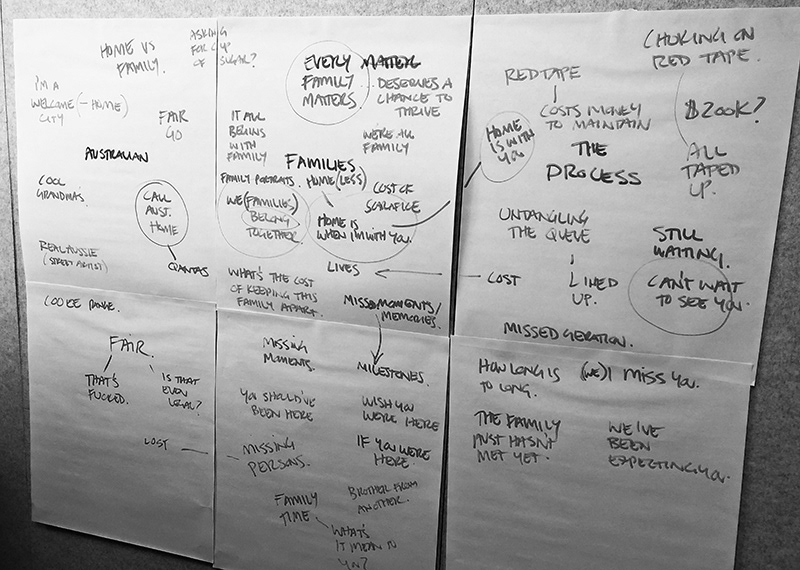 HOME VS
FAMILY.
ASKING
FOR CUP
OF SUGAR?
I'M A
WELCOME (-HOME)
CITY
FAIR
GO
AUSTRALIAN
COOL
GRANDMAS.
CALL
AUST.
HOME
REAL AUSSIE
(STREET ARTIST)
QANTAS
EVERY MATTER
FAMILY
MATTERS.
... DESERVES A
CHANCE TO
THRIVE
IT ALL
BEGINS
WITH
FAMILY
WE'RE ALL
FAMILY
FAMILIES.
FAMILY PORTRAITS.
HOME (LESS)
COST OF
SACRAFICE
WE (FAMILIES)
BELONG
TOGETHER.
HOME IS
WHEN I'M WITH YOU.
LIVES
WHAT'S THE COST
OF KEEPING THIS
FAMILY APART.
MISSED MOMENTS/
MEMORIES.
CHOKING ON
RED TAPE.
RED TAPE
COSTS MONEY
TO MAINTAIN
$200K?
HOME
IS WITH
YOU
THE
PROCESS
ALL
TAPED
UP.
UNTANGLING
THE QUEUE
STILL
WAITING.
COST
LINED
UP.
CAN'T WAIT
TO SEE YOU.
MISSEDGERATION.
FAIR.
THAT'S
FUCKED.
IS THAT
EVEN
LEGAL?
LOST
MISSING
MOMENTS.
MILESTONES.
YOU SHOULD'VE
BEEN HERE
WISH YOU
WERE HERE
MISSING
PERSONS.
IF YOU WERE
HERE.
FAMILY
TIME
BROTHER FROM
ANOTHER.
WHAT'S
IT MEAN TO
YOU?
HOW LONG IS
TO LONG.
(WE) I MISS YOU.
THE FAMILY
JUST HASN'T
MET YET.
WE'VE
BEEN
EXPECTING YOU.